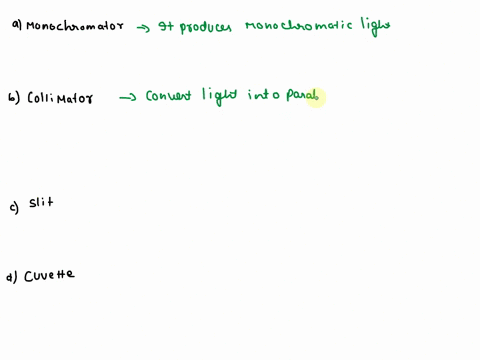 a) Monochromator → It produces Monochromatic light
b) Collimator → Convert light into Paral
c) Slit
d) Cuvette